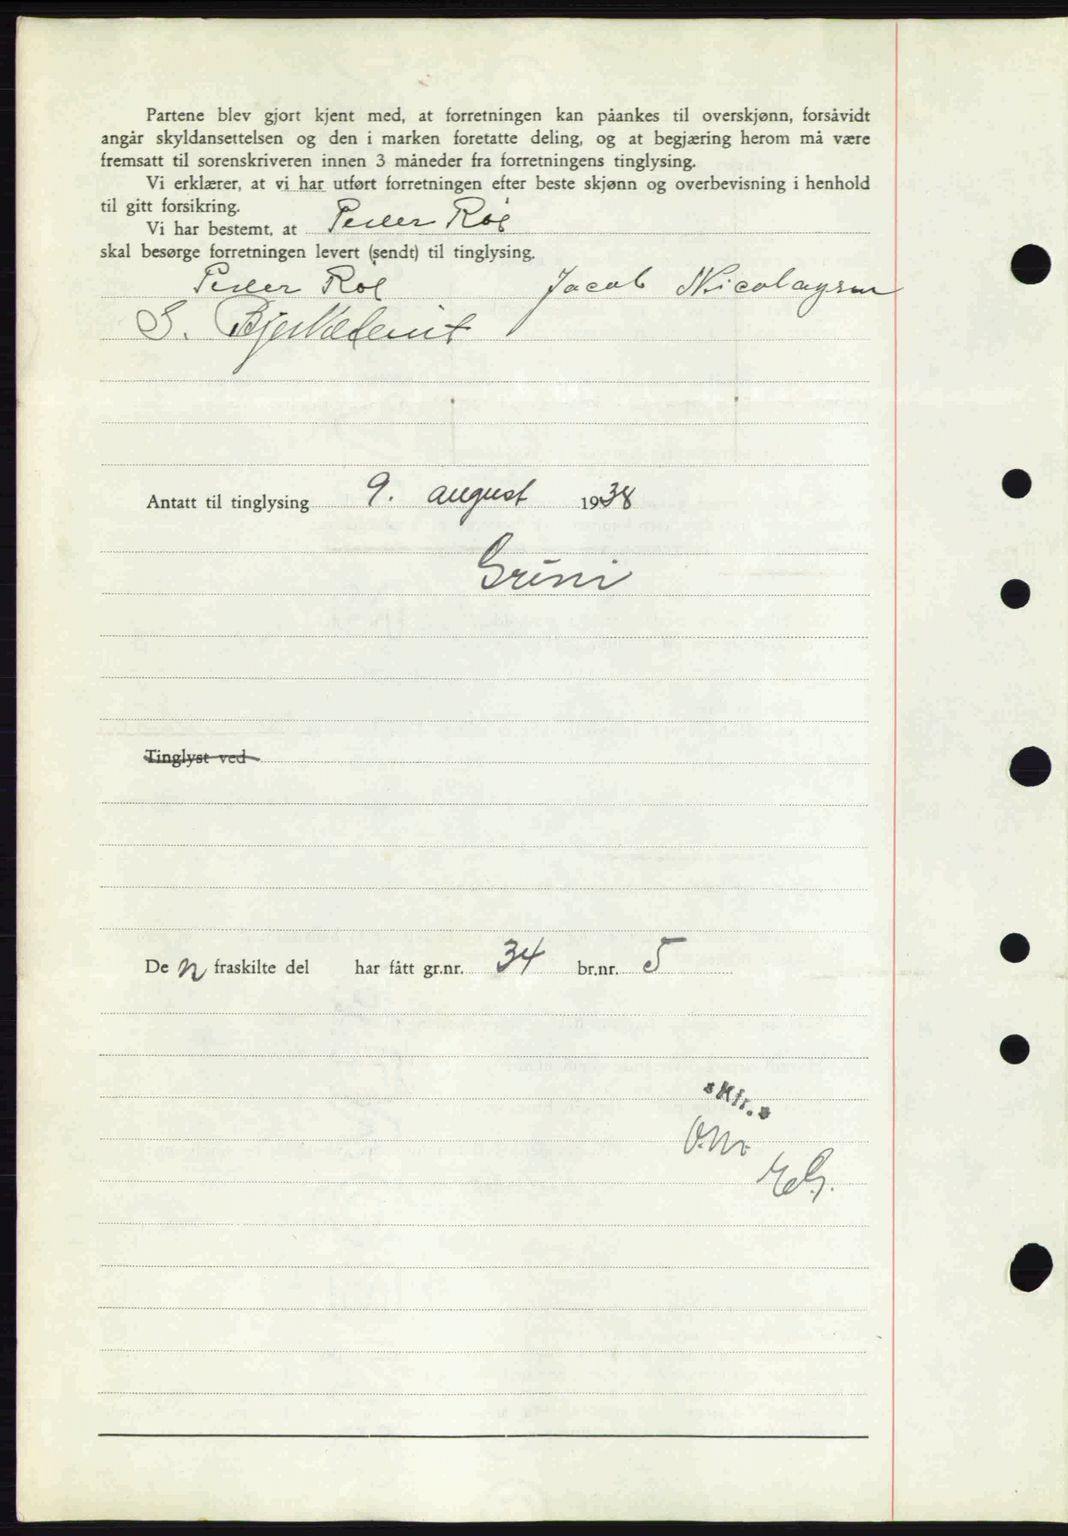 Partene blev gjort kjent med, at forretningen kan påankes til overskjønn, forsåvidt
angår skyldansettelsen og den i marken foretatte deling, og at begjæring herom må være
fremsatt til sorenskriveren innen 3 måneder fra forretningens tinglysing.
Vi erklærer, at vi har utført forretningen efter beste skjønn og overbevisning i henhold
til gitt forsikring.
Vi har bestemt, at Peder Røe
skal besørge forretningen levert (sendt) til tinglysing.
Peder Røe Jacob Nicolaysen
S.
Antatt til tinglysing 9. august 1938
Grini
Tinglyst ved
De n fraskilte del har fått gr.nr. 34 br.nr. 5
Kfr.